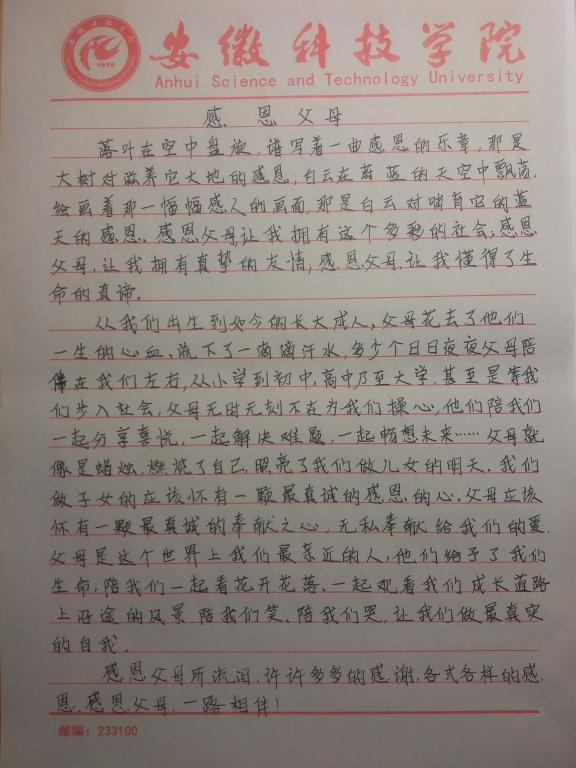 1950
安徽科技学院
Anhui Science and Technology University
感恩父母
落叶在空中盘旋,谱写着一曲感恩的乐章,那是
大树对滋养它大地的感恩;白云在蔚蓝的天空中飘荡,
绘画着那一幅幅感人的画面,那是白云对哺育它的蓝
天的感恩。感恩父母,让我拥有这个多彩的社会;感恩
父母,让我拥有真挚的友情;感恩父母,让我懂得了生
命的真谛。
从我们出生到如今的长大成人,父母花去了他们
一生的心血、流下了一滴滴汗水,多少个日日夜夜父母陪
在我们左右,从小学到初中,高中乃至大学,甚至是等我
们步入社会,父母无时无刻不在为我们操心,他们陪我们
一起分享喜悦,一起解决难题,一起畅想未来……父母就
像是蜡烛,燃烧了自己,照亮了我们做儿女的明天。我们
做子女的应该怀有一颗最真诚的感恩的心。父母应该
怀有一颗最真诚的奉献之心,无私奉献给我们的爱.
父母是这个世界上我们最亲近的人,他们给予了我们
生命,陪我们一起看花开花落、一起观看我们成长道路
上沿途的风景 陪我们笑、陪我们哭,让我们做最真实
的自我。
感恩父母所流泪,许许多多的感谢,各式各样的感
恩,感恩父母,一路相伴!
邮编:233100